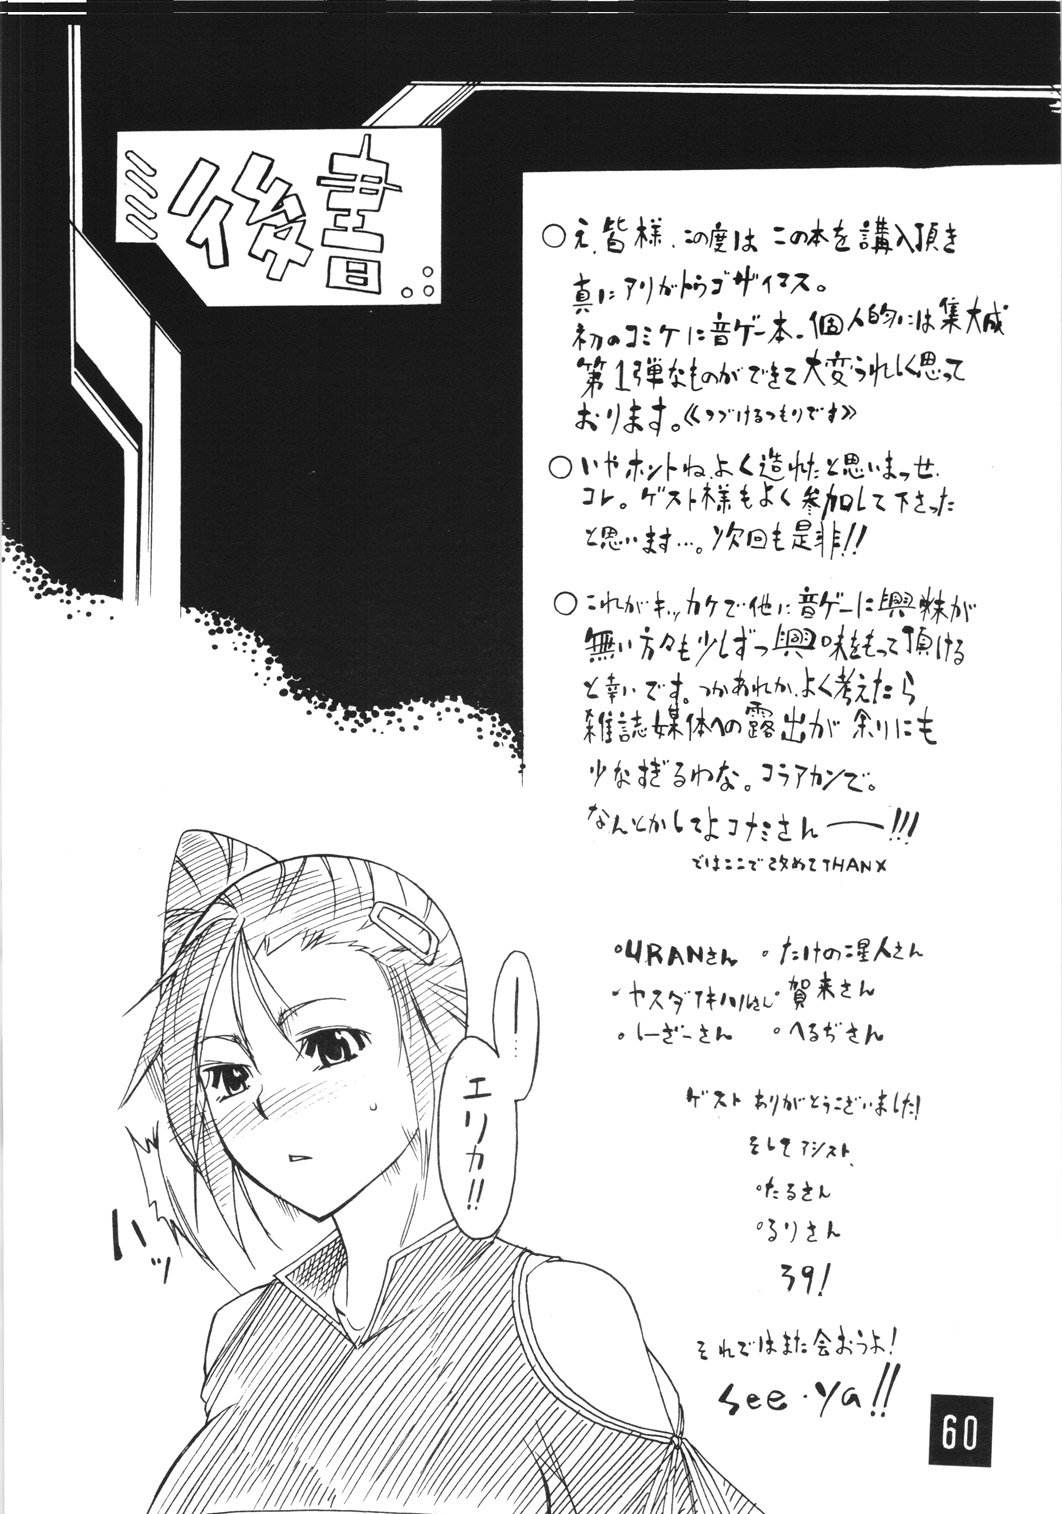 後書
○え、皆様、この度はこの本を講入頂き
真にアリがトウゴザイマス。
初のコミケに音ゲー本、個人的には集大成
第1弾なものができて大変うれしく思って
おります。《つづけるつもりです》
○いやホントね、よく造れたと思いまっせ、
コレ。ゲスト様もよく参加して下さった
と思います…。次回も是非!!
○これがキッカケで他に音ゲーに興味が
無い方々も少しずつ興味をもって頂ける
と幸いです。つかあれか、よく考えたら
雑誌媒体への露出が余りにも
少なすぎるわな。コラアカンで。
なんとかしてよコナミさんー!!!
ではここで改めてTHANX
°URANさん °たけの二星人さん
・ヤスダアキハルさん °賀来さん
°しーざーさん °へるぢさん
ゲストありがとうございました!
そしてアシスト、
°たるさん
°るりさん
39!
それではまた会おうよ!
see・ya!!
ー…
エリカ!!
ハッ
60